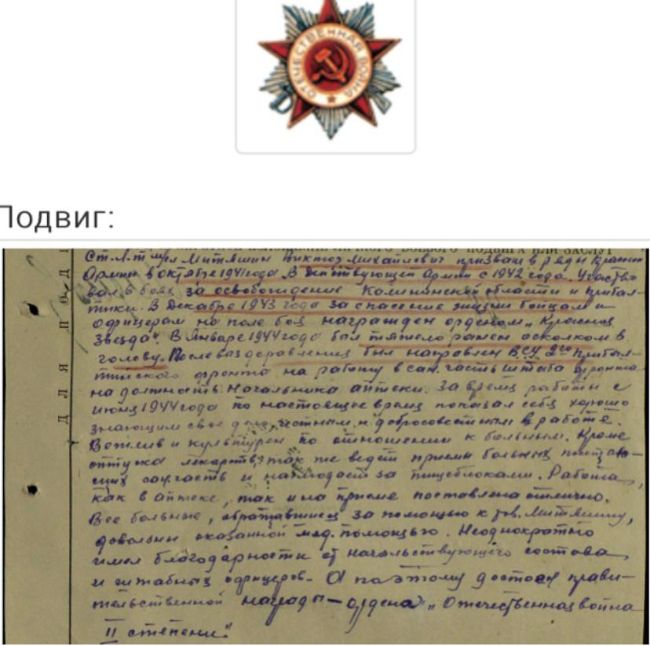 ОТЕЧЕСТВЕННАЯ ВОЙНА
Подвиг:
ЛИЧНОГО БОЕВОГО ПОДВИГА ИЛИ ЗАСЛУГ
Митяшин Виктор Михайлович призван в ряды Красной
Армии в октябре 1941 года. В действующей Армии с 1942 года. Участво-
вал в боях за освобождение Калининской области и Прибал-
тики. В декабре 1943 года за спасение жизни бойцам и
офицерам на поле боя награжден орденом „Красная
Звезда". В январе 1944 года был тяжело ранен осколком в
голову. После выздоровления был направлен 2го Прибал-
тийского фронта на работу в сан. часть штаба фронта
на должность начальника аптеки. За время работы с
июня 1944 года по настоящее время показал себя хорошо
знающим свое дело, честным и добросовестным в работе.
Вежлив и культурен по отношению к больным. Кроме
отпуска лекарств, так же ведет прием больных
и наблюдает за пищеблоками. Работа,
как в аптеке, так и на приеме поставлена отлично.
Все больные, обратившиеся за помощью к тов. Митяшину,
довольны оказанной мед. помощью. Неоднократно
имел благодарности от начальствующего состава
и штабных офицеров. А поэтому достоен прави-
тельственной награды – ордена „Отечественная война
II степени".
ДЛЯ ПОД